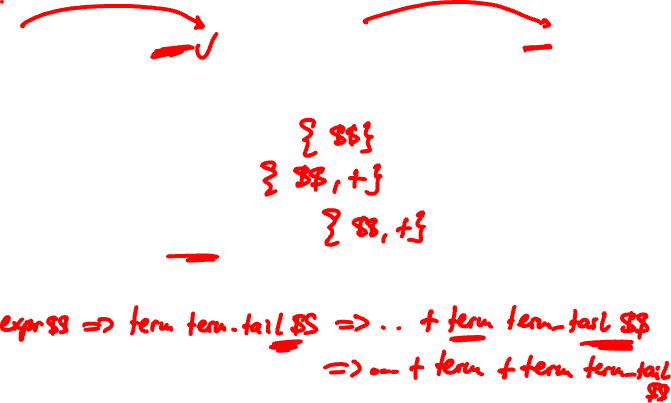 { $$}
{ $$, +}
{ $$, +}
expr $$ => term term_tail $$ => .. + term term_tail $$
=> ... + term + term term_tail
$$